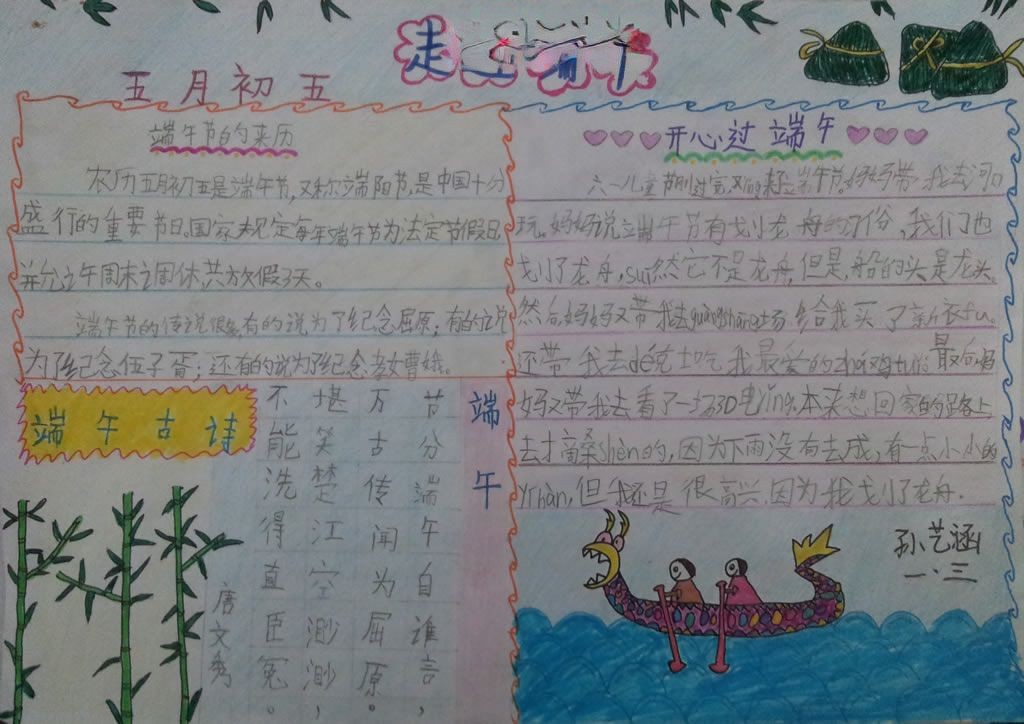 走
五月初五
端午节的来历
农历五月初五是端午节,又称端阳节,是中国十分
盛行的重要节日。国家规定每年端午节为法定节假日
并允之午周末之周休,共放假3天。
端午节的传说很多,有的说为了纪念屈原;有的说
为了纪念伍子胥;还有的说为了纪念孝女曹娥。
端午古诗
端午
节分端午自谁言,
万古传闻为屈原。
堪笑楚江空渺渺,
不能洗得直臣冤。
唐文秀
开心过端午
六一儿童节刚过完,又迎来端午节,妈妈带我去河口
玩。妈妈说端午节有划龙舟的习俗,我们也
划了龙舟,suī然它不是龙舟,但是,船的头是龙头,
然后妈妈又带我去guǎngchǎng给我买了新衣fu。
还带我去dé克士吃我最爱的zhá鸡tuǐ,最后妈
妈又带我去看了一场3D电yǐng。本来想回家的路上
去才摘桑shèn的,因为下雨没有去成,有一点小小的
yíhàn,但我还是很高兴,因为我划了龙舟.
孙艺涵
一.三